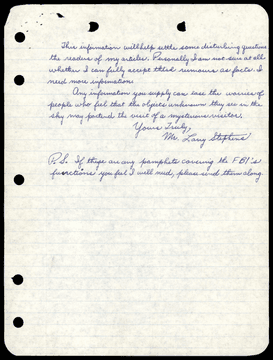 This information will help settle some disturbing questions
the readers of my articles. Personally I am not sure at all
whether I can fully accept these rumours as facts. I
need more information.
Any information you supply can ease the worries of
people who feel that the objects unknown they see in the
sky may portend the visit of a mysterious visitor.
Yours Truly,
Mr. Larry Stephens
P.S. If there are any pamphlets covering the FBI's
functions you feel I will need, please send them along.